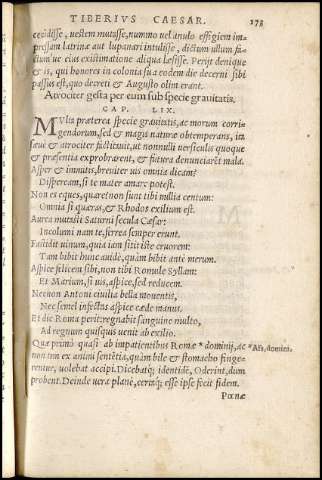 TIBERIVS CAESAR. 273
cecidisse, uestem mutasse, nummo uel anulo effigiem im-
pressam latrinæ aut lupanari intulisse, dictum ullum fa-
ctum ue eius existimatione aliqua læsisse. Perijt denique
& is, qui honores in colonia sua eodem die decerni sibi
passus est, quo decreti & Augusto olim erant.
Atrociter gesta per eum sub specie grauitatis.
CAP. LIX.
MVlta præterea specie grauitatis, ac morum corri-
gendorum, sed & magis naturæ obtemperans, ita
sæue & atrociter factitauit, ut nonnulli uersiculis quoque
& præsentia exprobrarent, & futura denunciarent mala.
Asper & immitis, breuiter uis omnia dicam?
Dispeream, si te mater amare potest.
Non es eques, quare? non sunt tibi millia centum:
Omnia si quæras, & Rhodos exilium est.
Aurea mutasti Saturni secula Cæsar:
Incolumi nam te, ferrea semper erunt.
Fastidit uinum, quia iam sitit iste cruorem:
Tam bibit hunc auidè, quàm bibit antè merum.
Aspice felicem sibi, non tibi Romule Syllam:
Et Marium, si uis, aspice, sed reducem.
Necnon Antoni ciuilia bella mouentis,
Nec semel infectas aspice cæde manus.
Et dic Roma perit: regnabit sanguine multo,
Ad regnum quisquis uenit ab exilio.
Quæ primò quasi ab impatientibus Romæ * dominij, ac
*Als, domini.
non tam ex animi sentētia, quàm bile & stomacho finge-
rentur, uolebat accipi. Dicebatq; identidē, Oderint, dum
probent. Deinde uera planè, certaq; esse ipse fecit fidem.
Pœnæ